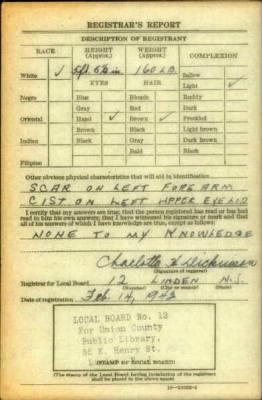 REGISTRAR'S REPORT
DESCRIPTION OF REGISTRANT
RACE HEIGHT (Approx.) WEIGHT (Approx.) COMPLEXION
White ✓ 5ft. 5½in. 160 LB. Sallow
EYES HAIR Light ✓
Negro Blue Blonde Ruddy
Gray Red Dark
Oriental Hazel Brown ✓ Freckled
Brown Black Light brown
Indian Black Gray Dark brown
Bald Black
Filipino
Other obvious physical characteristics that will aid in identification
SCAR ON LEFT FORE ARM
CIST ON LEFT UPPER EYELID
I certify that my answers are true; that the person registered has read or has had
read to him his own answers; that I have witnessed his signature or mark and that
all of his answers of which I have knowledge are true, except as follows:
NONE TO MY KNOWLEDGE
Charlotte
(Signature of registrar)
Registrar for Local Board 12 LINDEN N.J.
(Number) (City or county) (State)
Date of registration Feb. 14, 1942
LOCAL BOARD No. 12
For Union County
Public Library,
E. Henry St.
(STAMP OF LOCAL BOARD)
(The stamp of the Local Board having jurisdiction of the registrant
shall be placed in the above space)